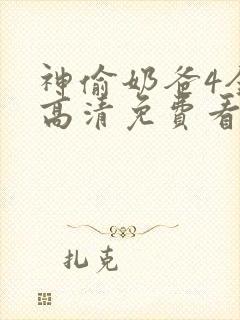 神偷奶爸4全
高清免費看
扎克